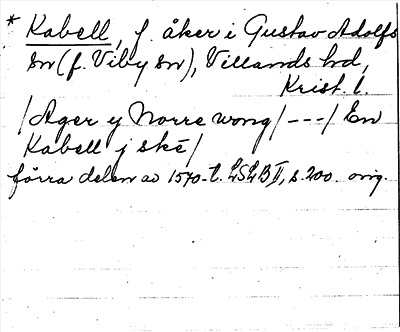 * Kabell, f. åker i Gustav Adolfs
sn (f. Viby sn), Villands hd,
Krist. l.
/Ager y Norre wong/ - - - / En
Kabell j ské/
förra delen av 1570-t. LSLB II, s. 200. orig.